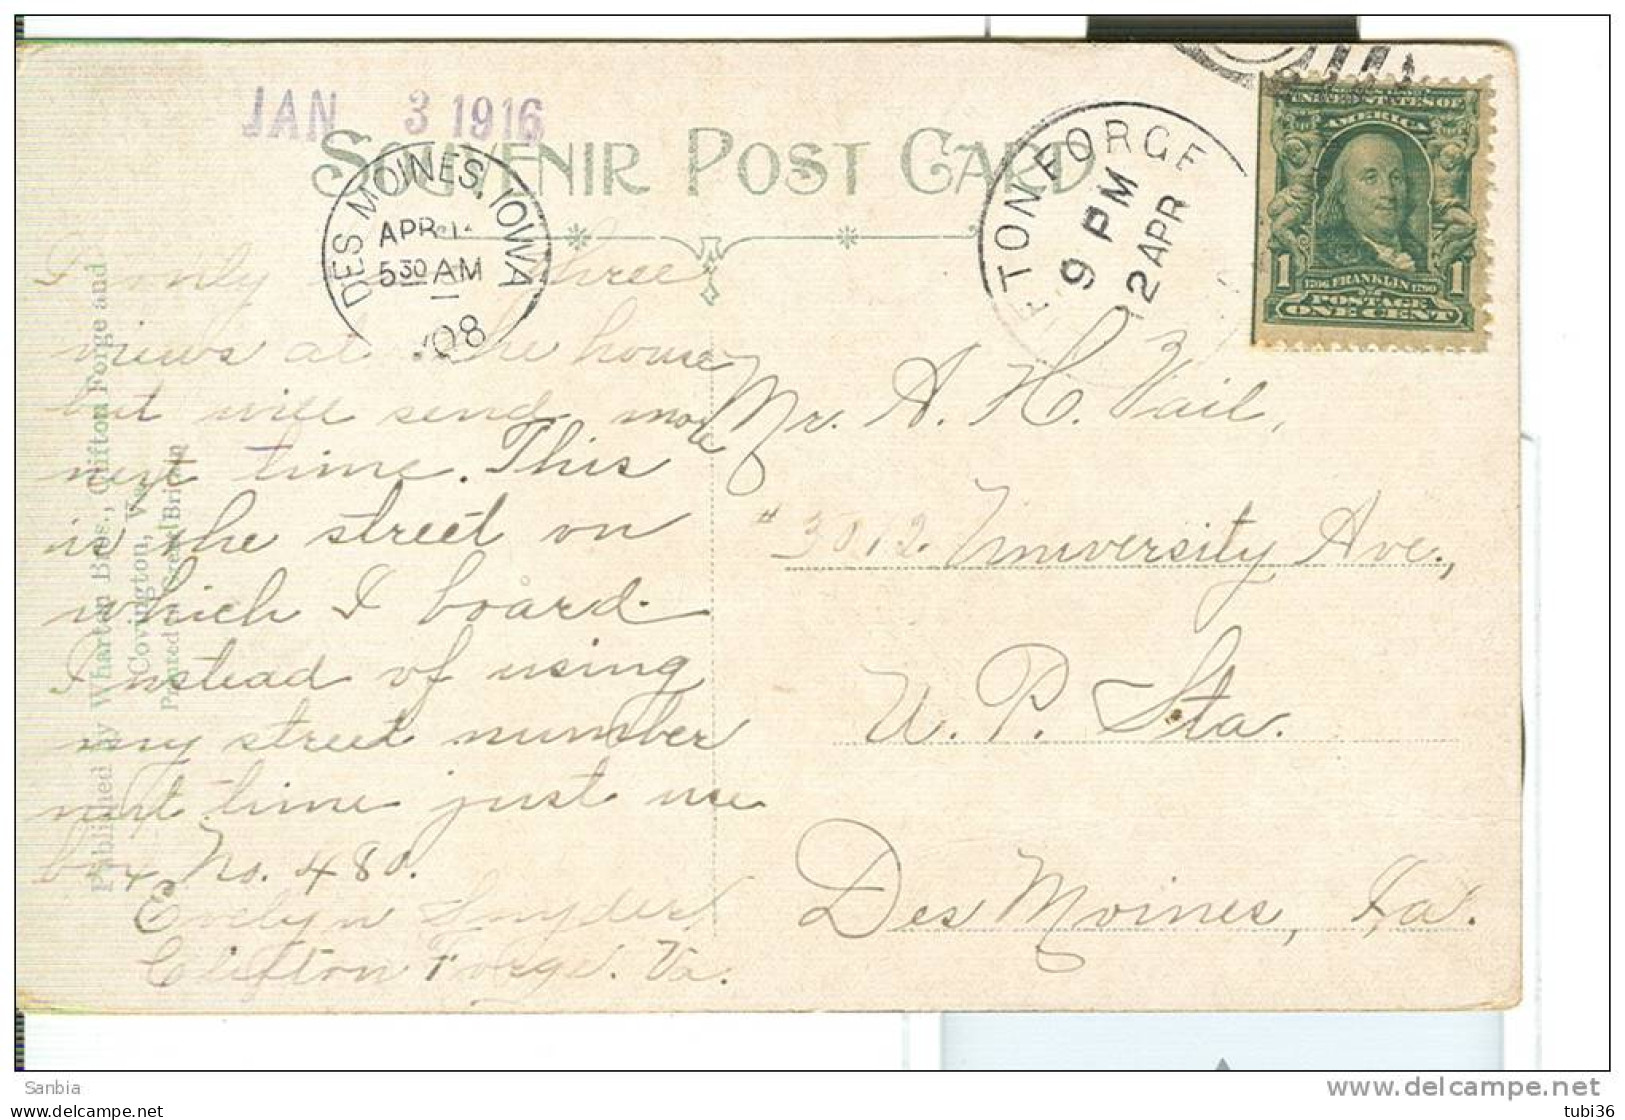 JAN 3 1916
SOUVENIR POST CARD
DES MOINES, IOWA
APR
5 30 AM
'08
TON FORGE
9 PM
2 APR
UNITED STATES OF
AMERICA
1 1706 FRANKLIN 1790 1
POSTAGE
ONE CENT
Published by Wharton Bros., Clifton Forge and
Covington, Va.
Printed in Great Britain
only three
views at the house
but will send more
next time. This
is the street on
which I board.
Instead of using
my street number
next time just use
box No. 480.
Evelyn Snyder
Clifton Forge. Va.
Mr. A. H. Vail,
# 3012 University Ave.,
U. P. Sta.
Des Moines, Ia.
Sanbia
posta-card.com
www.delcampe.net
tubi36